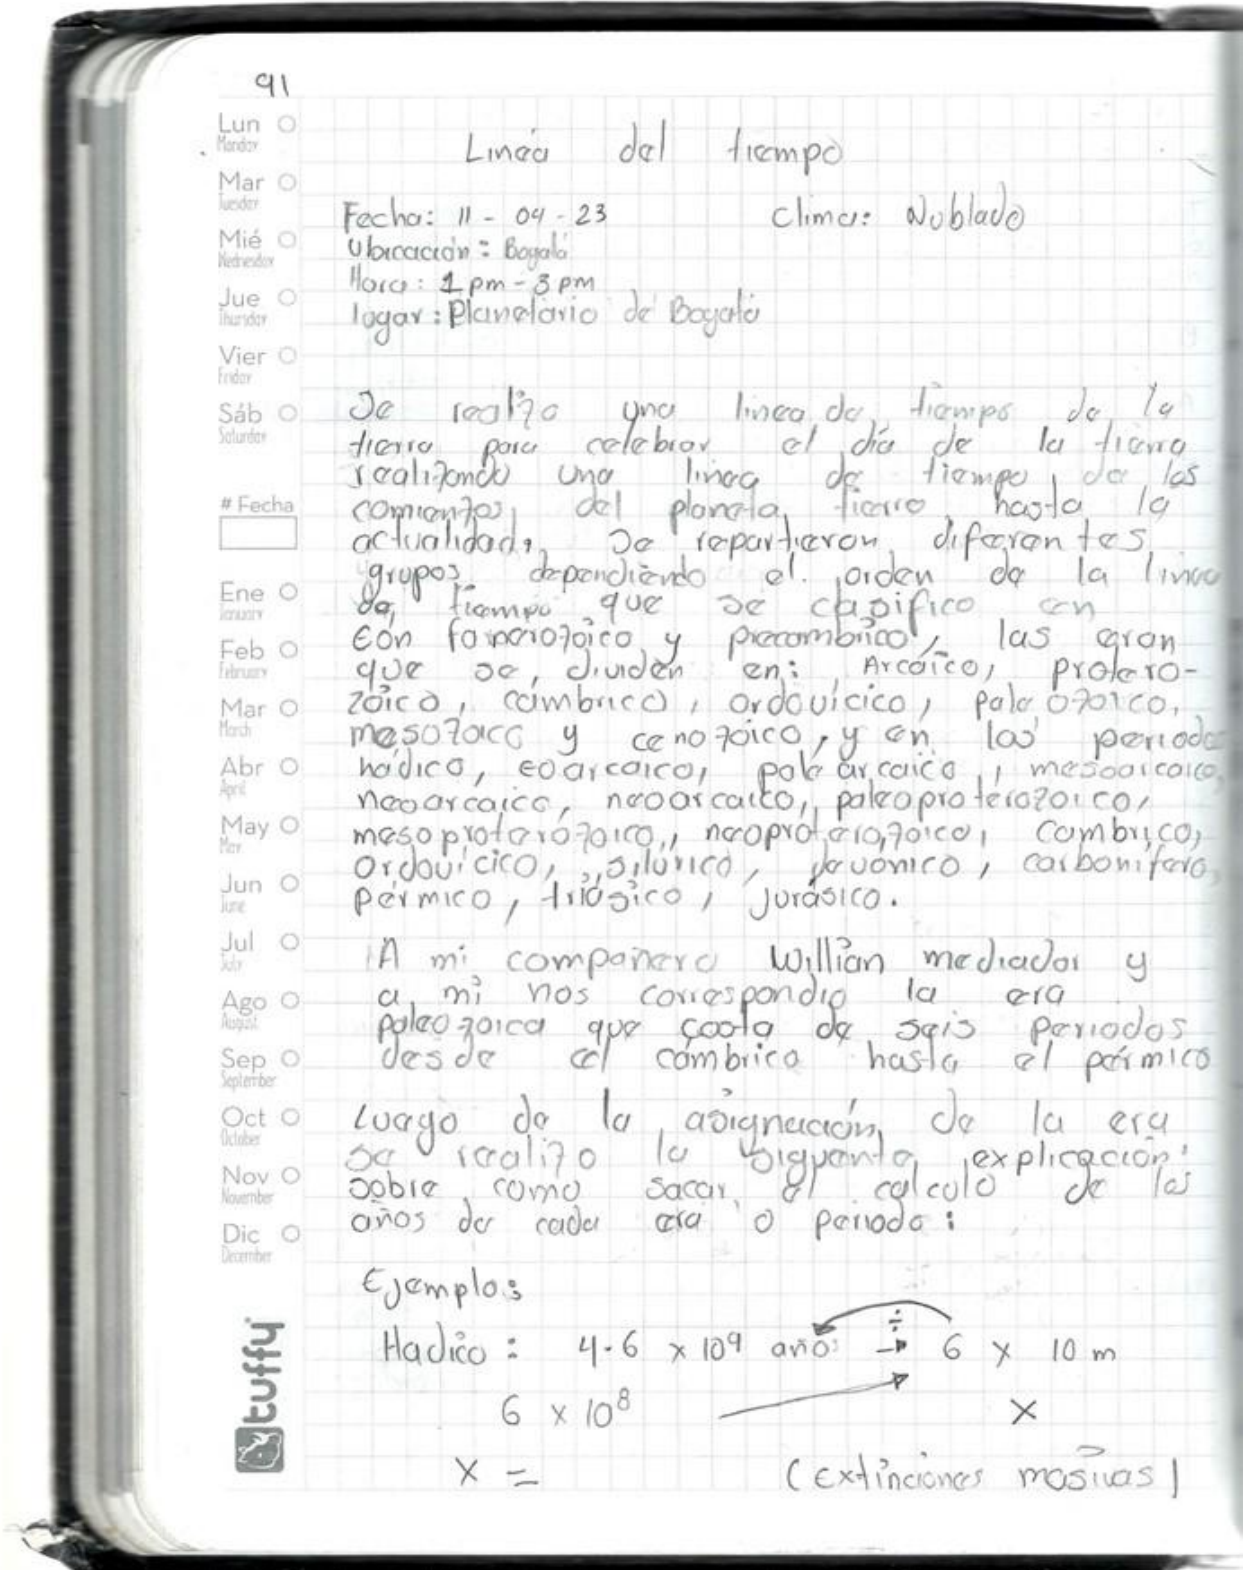 91
Lun
Monday
Mar
Tuesday
Mié
Wednesday
Jue
Thursday
Vier
Friday
Sáb
Saturday
# Fecha
Ene
January
Feb
February
Mar
March
Abr
April
May
May
Jun
June
Jul
July
Ago
August
Sep
September
Oct
October
Nov
November
Dic
December
tuffy
Linea del tiempo
Fecha: 11 - 04 - 23 Clima: Nublado
Ubicación: Bogotá
Hora: 1 pm - 3 pm
lugar: Planetario de Bogotá
Se realizo una linea de tiempo de la
tierra para celebrar el día de la tierra
realizando una linea de tiempo, de los
comienzos, del planeta, tierra, hasta la
actualidad. Se repartieron diferentes
grupos dependiendo el orden de la linea
de tiempo que se clasifico en
Eón fanerozoico y precambrico, las eran
que se dividen en: Arcaico, protero-
zóico, cambrico, ordovicico, paleozoico,
mesozoico y cenozóico, y en los periodo
hadico, eoarcaico, paleoarcaico, mesoarcaico,
neoarcaico, neoarcaico, paleoproterozoico,
mesoproterózoico, neoproterozoico, cambrico,
ordovicico, silúrico, devónico, carbonifero,
pérmico, triásico, jurásico.
A mi compañero Willian mediador y
a mi nos correspondio la era
paleozoica que costa de seis periodos
desde el cámbrico hasta el pérmico
Luego de la asignación de la era
se realizo la siguente explicación
sobre como sacar el calculo de los
años de cada era o periodo:
Ejemplo:
Hadico: 4.6 x 10⁹ años ÷ → 6 x 10 m
6 x 10⁸ → x
x = (Extinciones masivas)